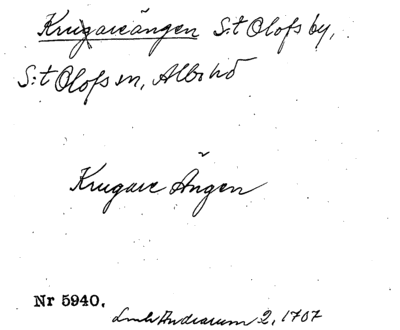 Krugareängen S:t Olofs by,
S:t Olofs sn, Albo hd
Krugare Ängen
Nr 5940.
Lmb Andrarum 2, 1707